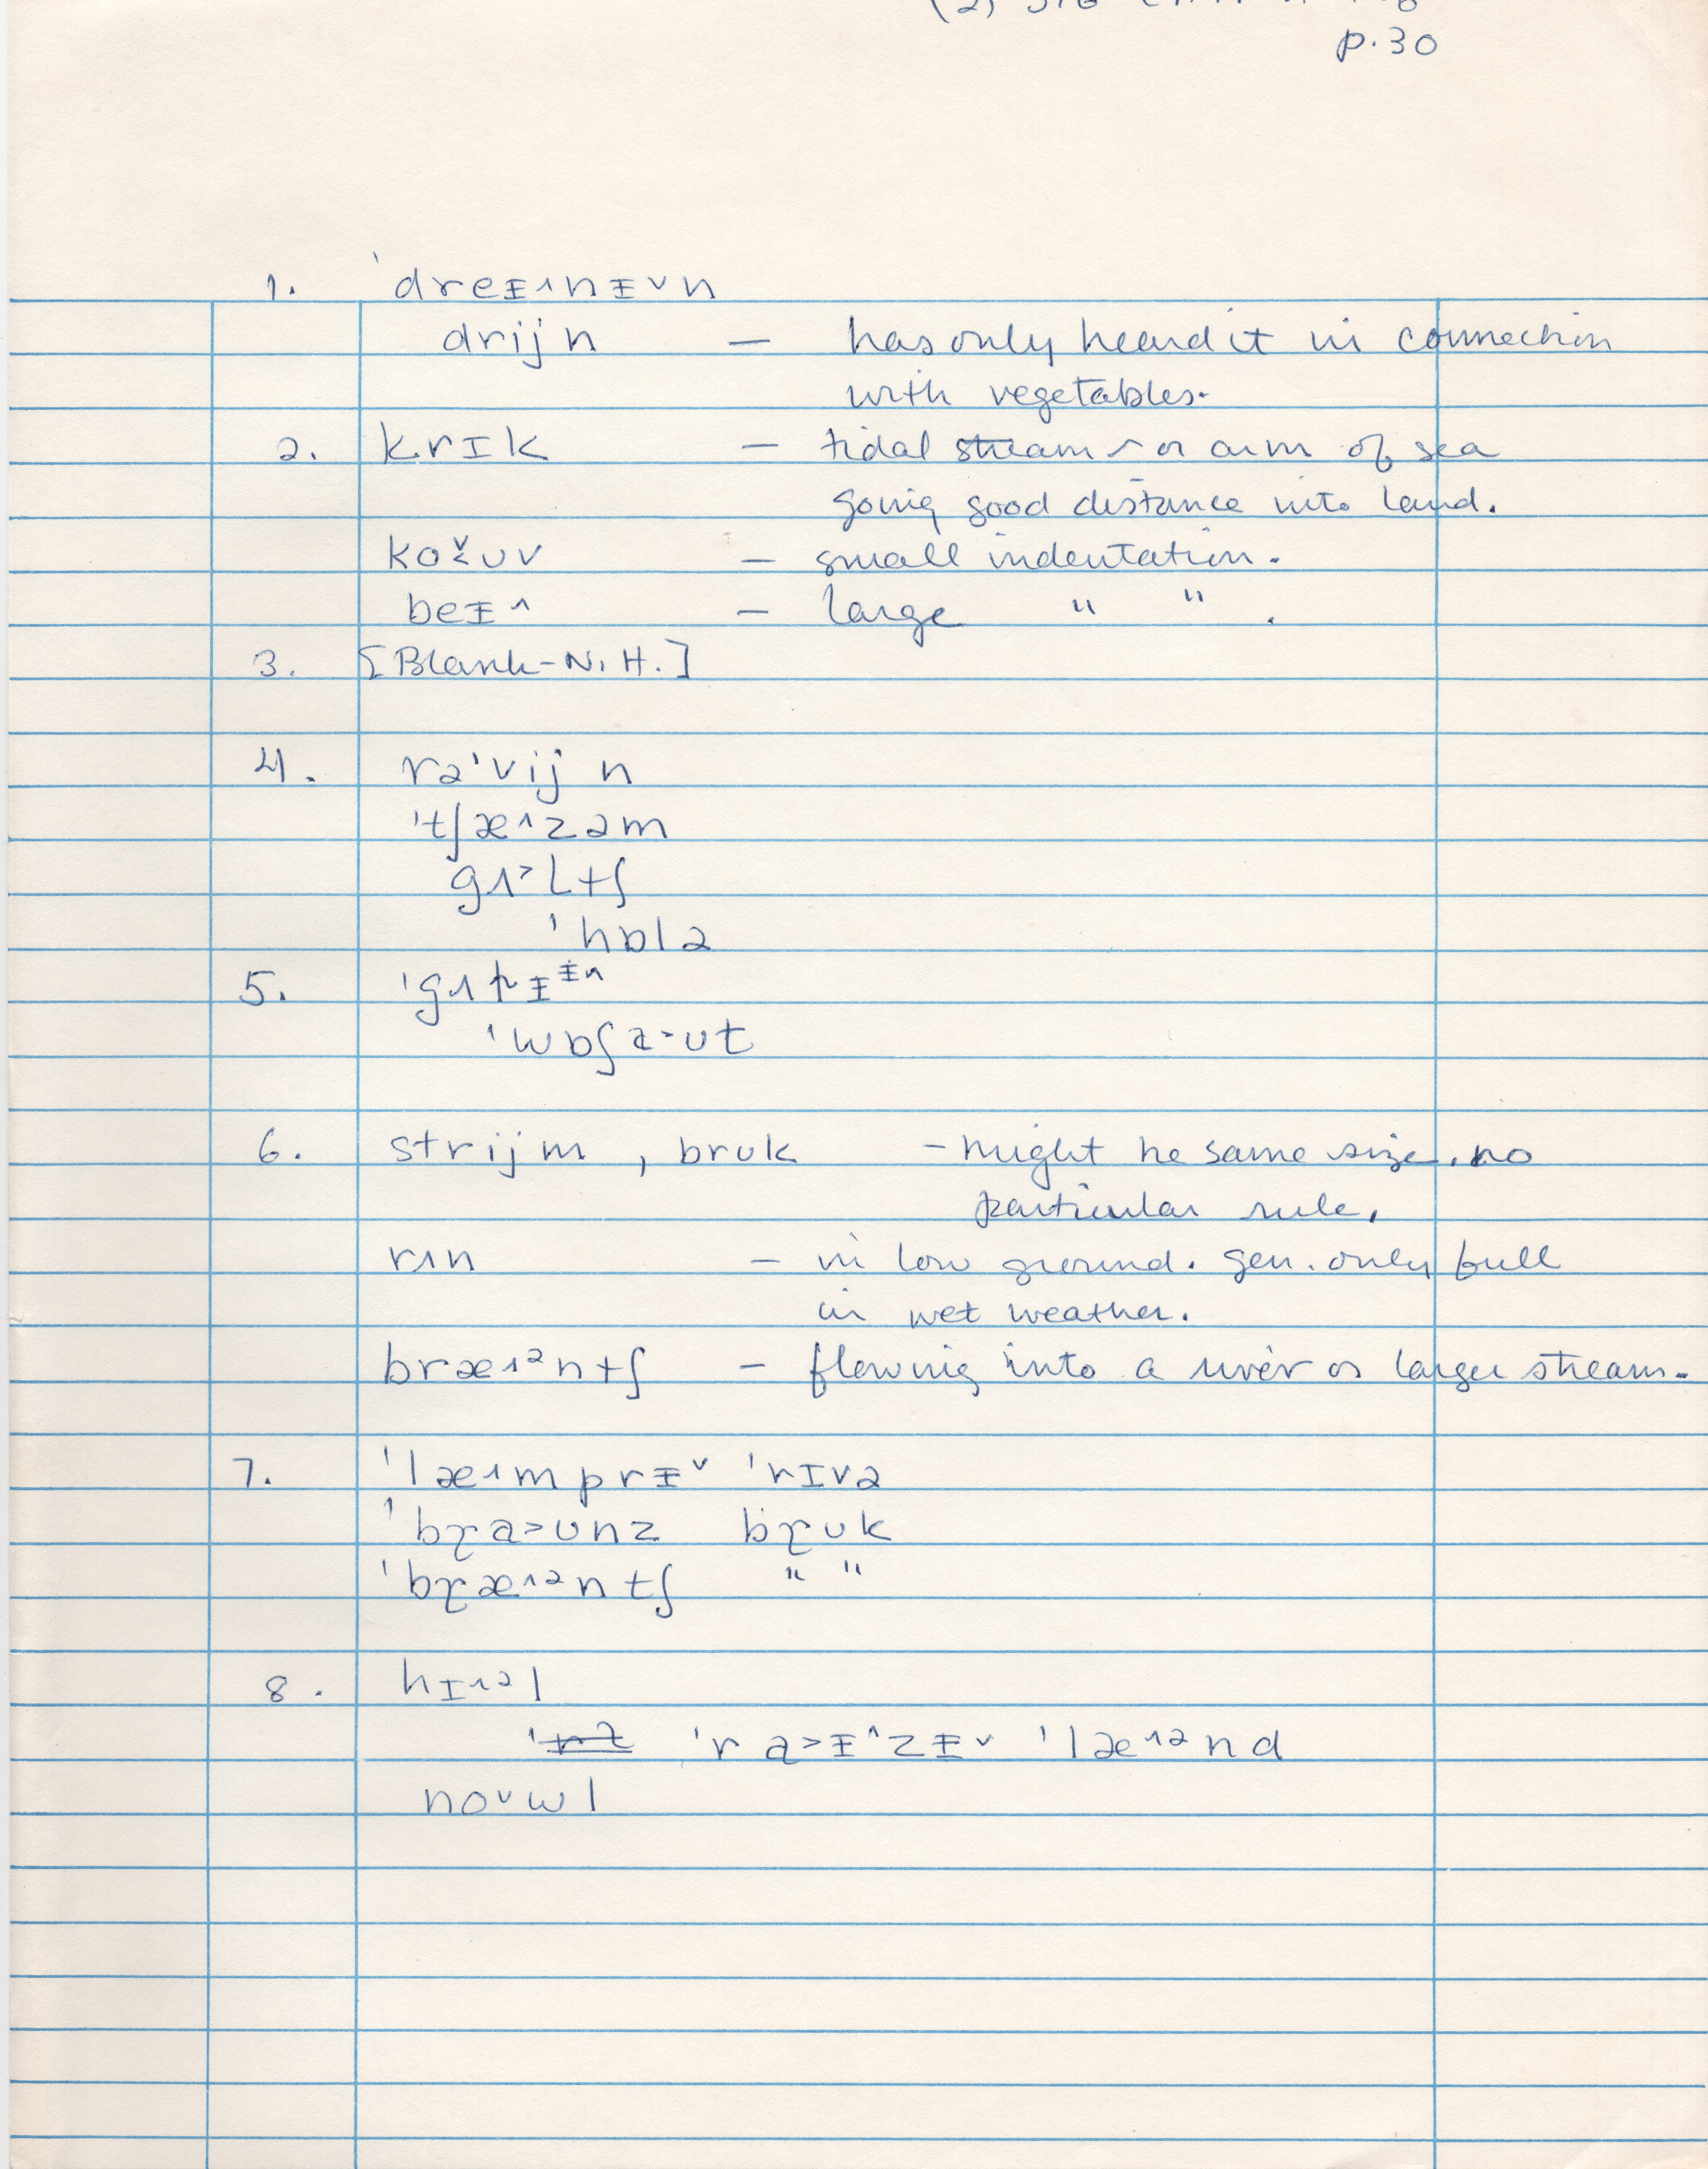 p.30
1. 'dreᵻ˄nᵻ˅n
drijn — has only heard it in connection
with vegetables.
2. krɪk — tidal stream or arm of sea
going good distance into land.
ko˅ʊv — small indentation.
beᵻ˄ — large " " .
3. [Blank-N.H.]
4. rə'vij n
'tʃæ˄zəm
gʌ˃ltʃ
'hɒlə
5. 'gʌtᵻᵻn
'wɒʃa˃ʊt
6. strijm , brʊk – might be same size, no
particular rule.
rʌn — in low ground. gen. only full
in wet weather.
bræ˄ᵊntʃ — flowing into a river or larger stream.
7. 'læ˄mprᵻ˅ 'rɪvə
'bɽa˃ʊnz bɽʊk
'bɽæ˄ᵊntʃ " "
8. hɪ˄ᵊl
'ra˃ᵻ˄zᵻ˅ 'læ˄ᵊnd
no˅wl